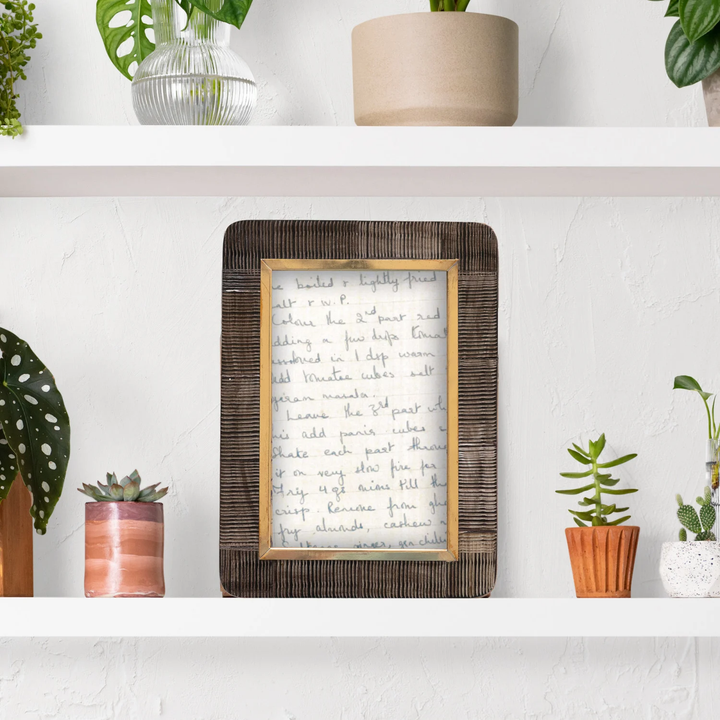 boiled & lightly fried
alt & w. P.
Colour the 2nd part red
dding a few drps tomat
in 1 dsp warm
add tomatoe cubes salt
garam masala.
Leave the 3rd part wh
add panir cubes
Shake each part throu
it on very slow fire for
Fry 4 oz onions till th
crisp. Remove from
fry almonds, cashew
ginger, grn chilli